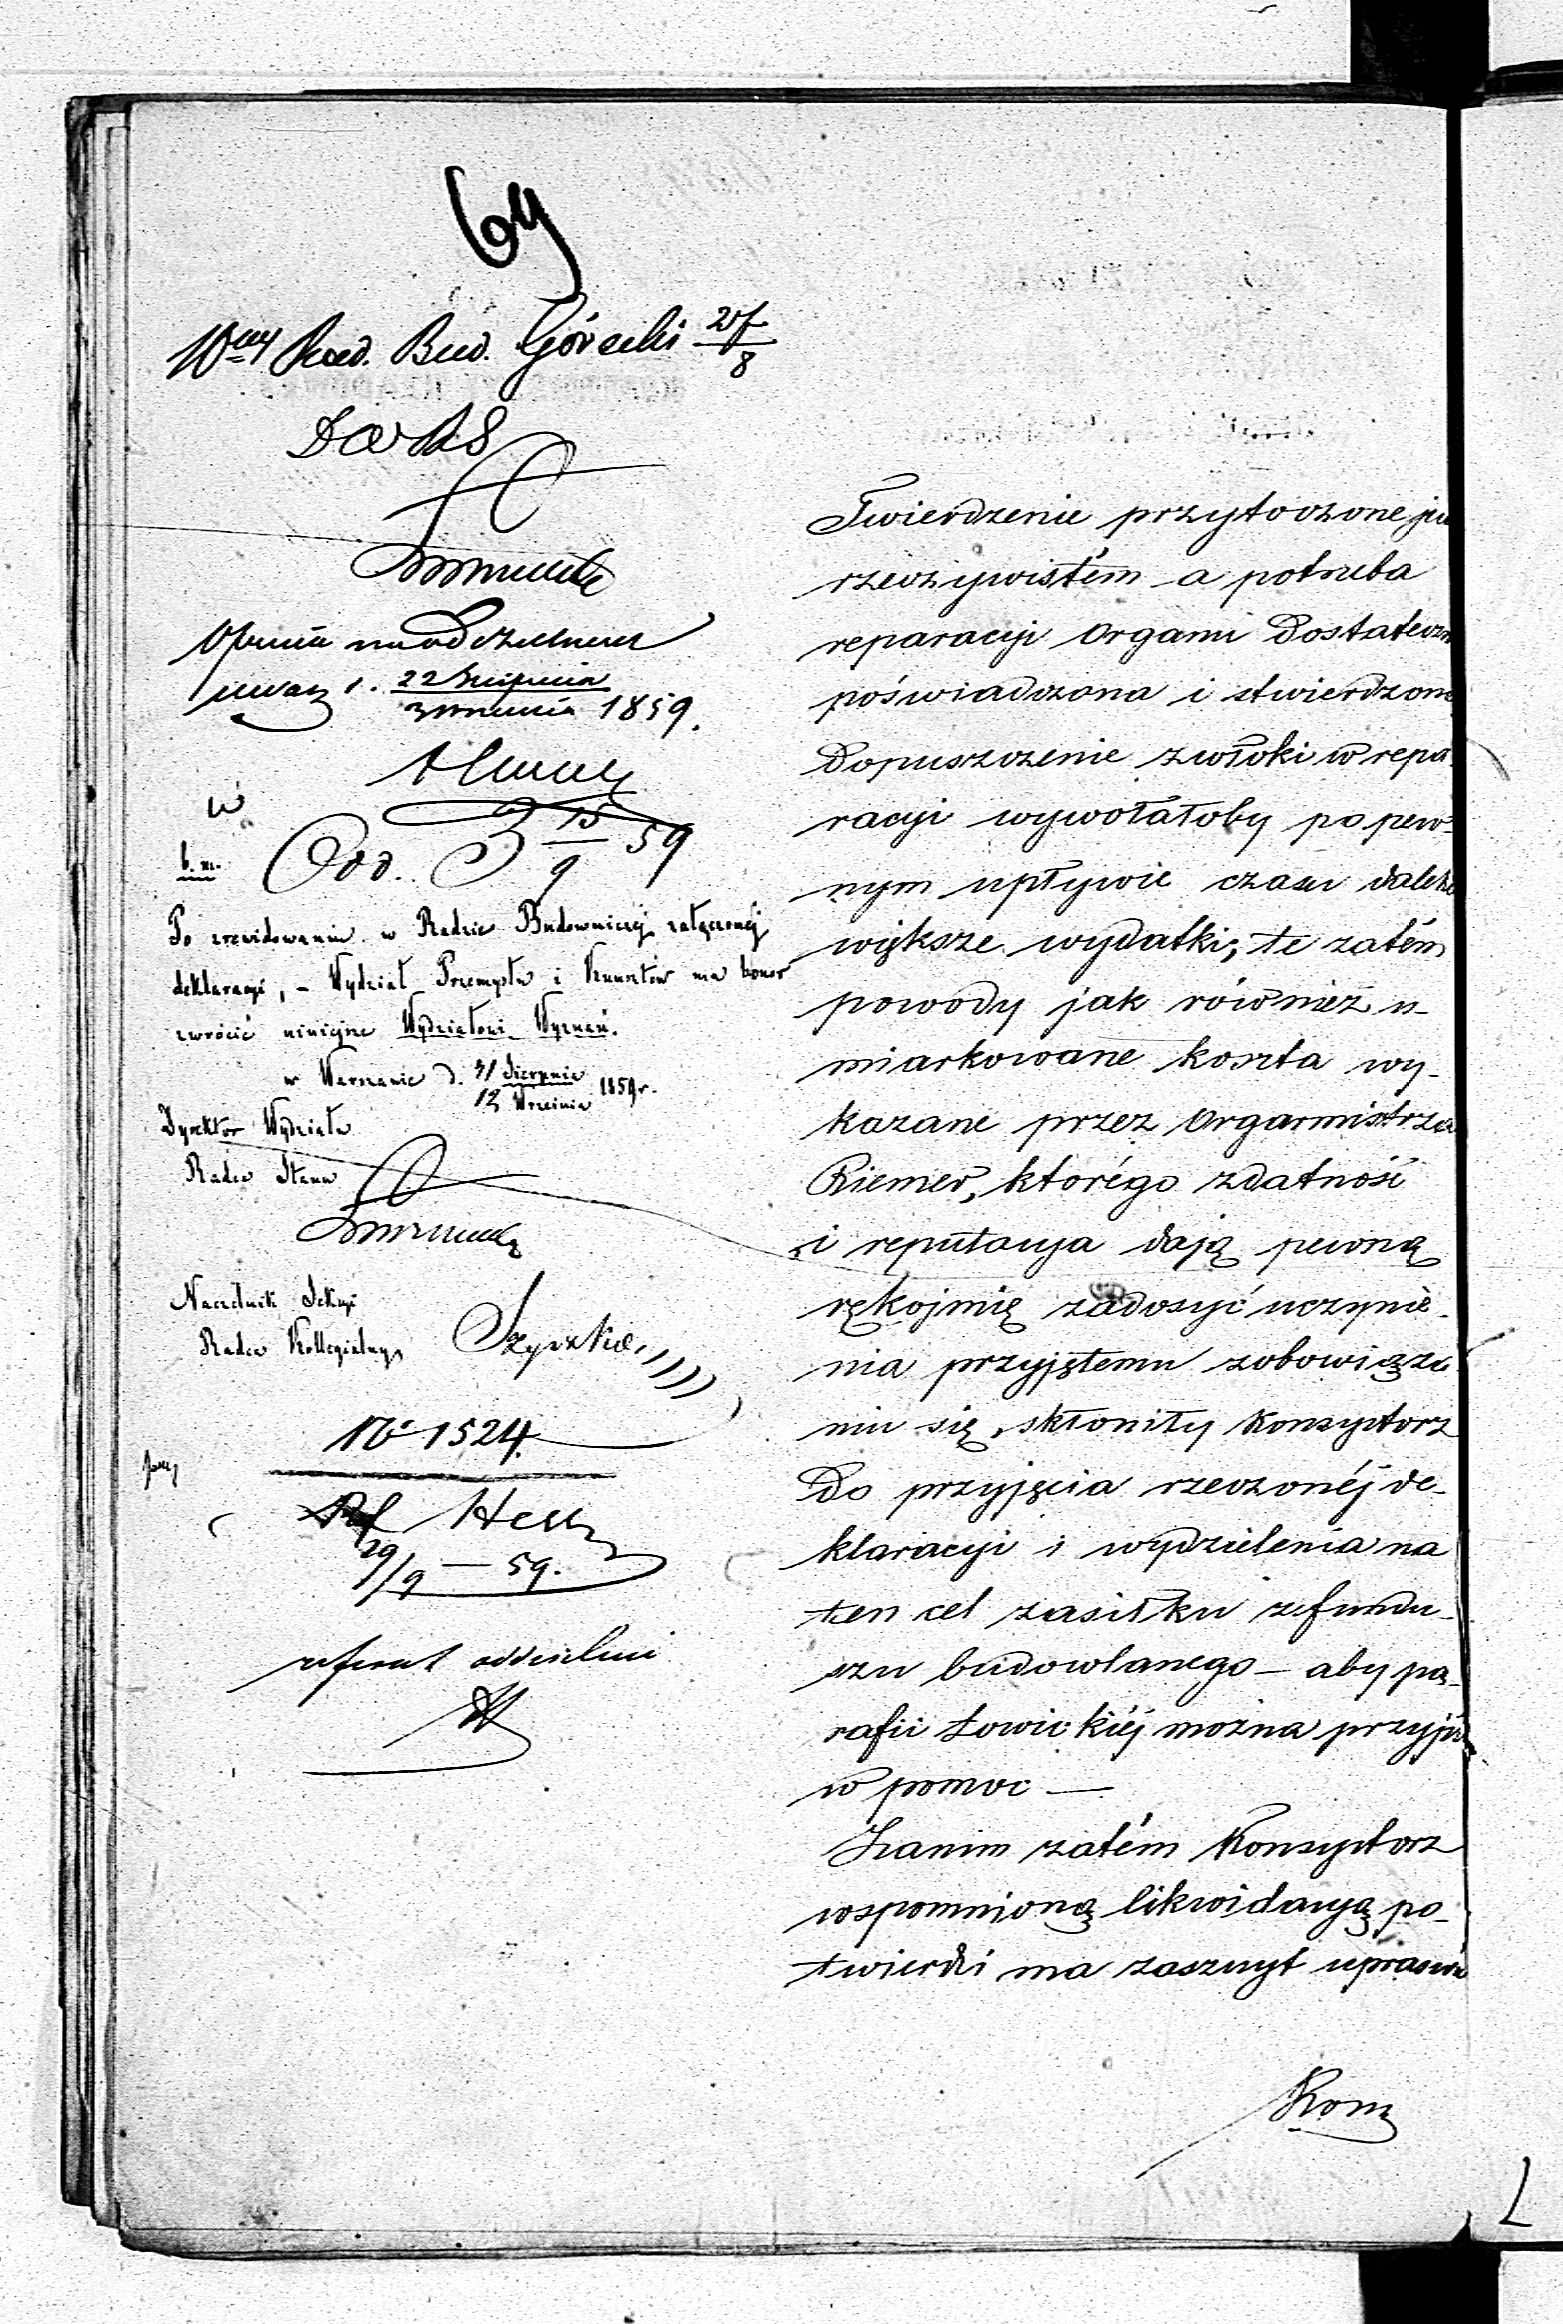 69
Rad. Bud. Górecki 27/8
1859.
Odd. 3 15/9 59
b. m.
Po zrewidowaniu w Radzie Budowniczej załączonej
deklaracyi, – Wydział Przemysłu i Kunsztów ma honor
zwrócić niniejsze Wydziałowi Wyznań.
w Warszawie d. 31 Sierpnia
12 Września 1859 r.
Dyrektor Wydziału
Radca Stanu
Naczelnik Sekcyi
Radca Kollegialny
Szyszka
No 1524
29/9 – 59.
referat oddzielni
Twierdzenie przytoczone je
rzeczywistém a potrzeba
reparacyi Organu dostateczn
poświadczona i stwierdzona
Dopuszczenie zwłoki w repa-
racyi wywołałoby po pew-
nym upływie czasu daleko
większe wydatki, te zatém
powody jak również u-
miarkowane koszta wy-
kazane przez Organmistrza
Riemer, którego zdatność
i reputacya dają pewną
rękojmię zadosyć uczynie-
nia przyjętemu zobowiąza-
niu się, skłoniły Konsystorz
do przyjęcia rzeczonéj de-
klaracyi i wydzielenia na
ten cel zasiłku z fundu-
szu budowlanego – aby pa-
rafii Łowickiéj można przyjść
w pomoc —
Zanim zatém Konsystorz
wspomnioną likwidacyą po-
twierdzi ma zaszczyt uprasza
Kom